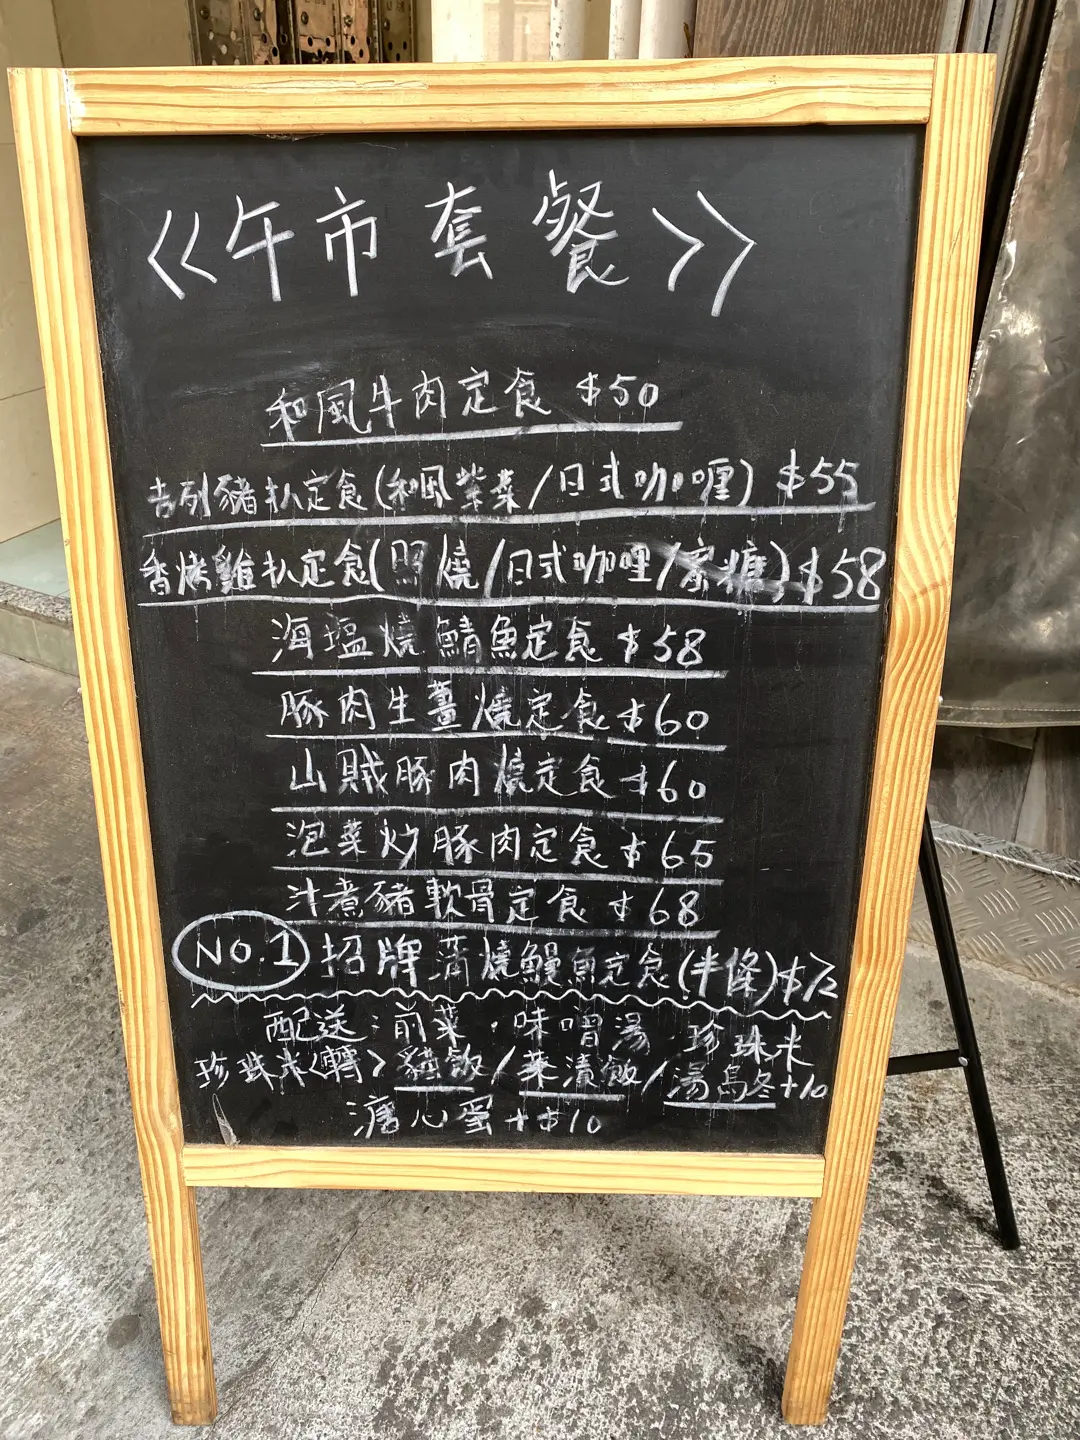 《午市套餐》
和風牛肉定食 $50
吉列豬扒定食(和風紫菜/日式咖喱) $55
香烤雞扒定食(照燒/日式咖喱/蜜糖) $58
海塩燒鯖魚定食 $58
豚肉生薑燒定食 $60
山賊豚肉燒定食 $60
泡菜炒豚肉定食 $65
汁煮豬軟骨定食 $68
NO.1 招牌蒲燒鰻魚定食(半條) $72
配送:前菜.味噌湯 珍珠米
珍珠米<轉>貓飯/菜漬飯/湯烏冬+10
溏心蛋+$10